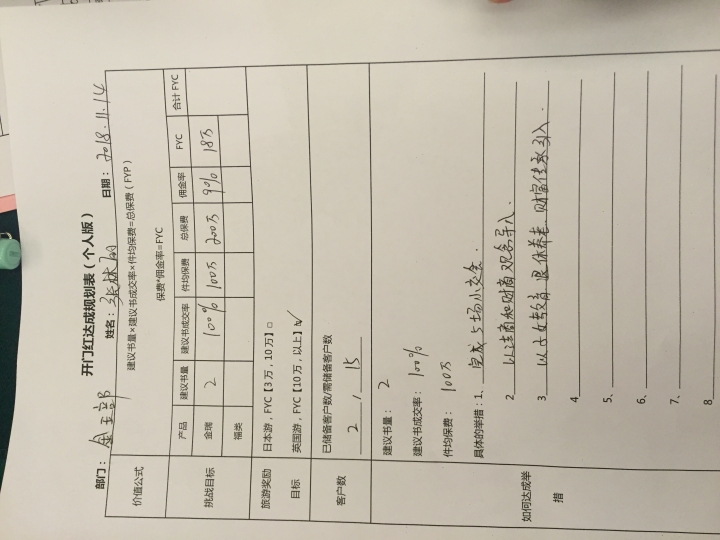 开门红达成规划表（个人版）
部门： 金玉部 姓名： 张林 日期： 2018.11.14
价值公式 建议书量×建议书成交率×件均保费=总保费（FYP）
保费*佣金率=FYC
挑战目标 产品 建议书量 建议书成交率 件均保费 总保费 佣金率 FYC 合计FYC
金瑞 2 100% 100万 200万 9% 18万
福类
旅游奖励 日本游，FYC【3万，10万】□
目标 英国游，FYC【10万，以上】☑
客户数 已储备客户数/需储备客户数
2 / 15
如何达成举措 建议书量： 2
建议书成交率： 100%
件均保费： 100万
具体的举措：1、 完成5场小交会.
2 以法商和财商观念导入.
3 以子女教育 退休养老、财富传承引入.
4
5、
6、
7、
8